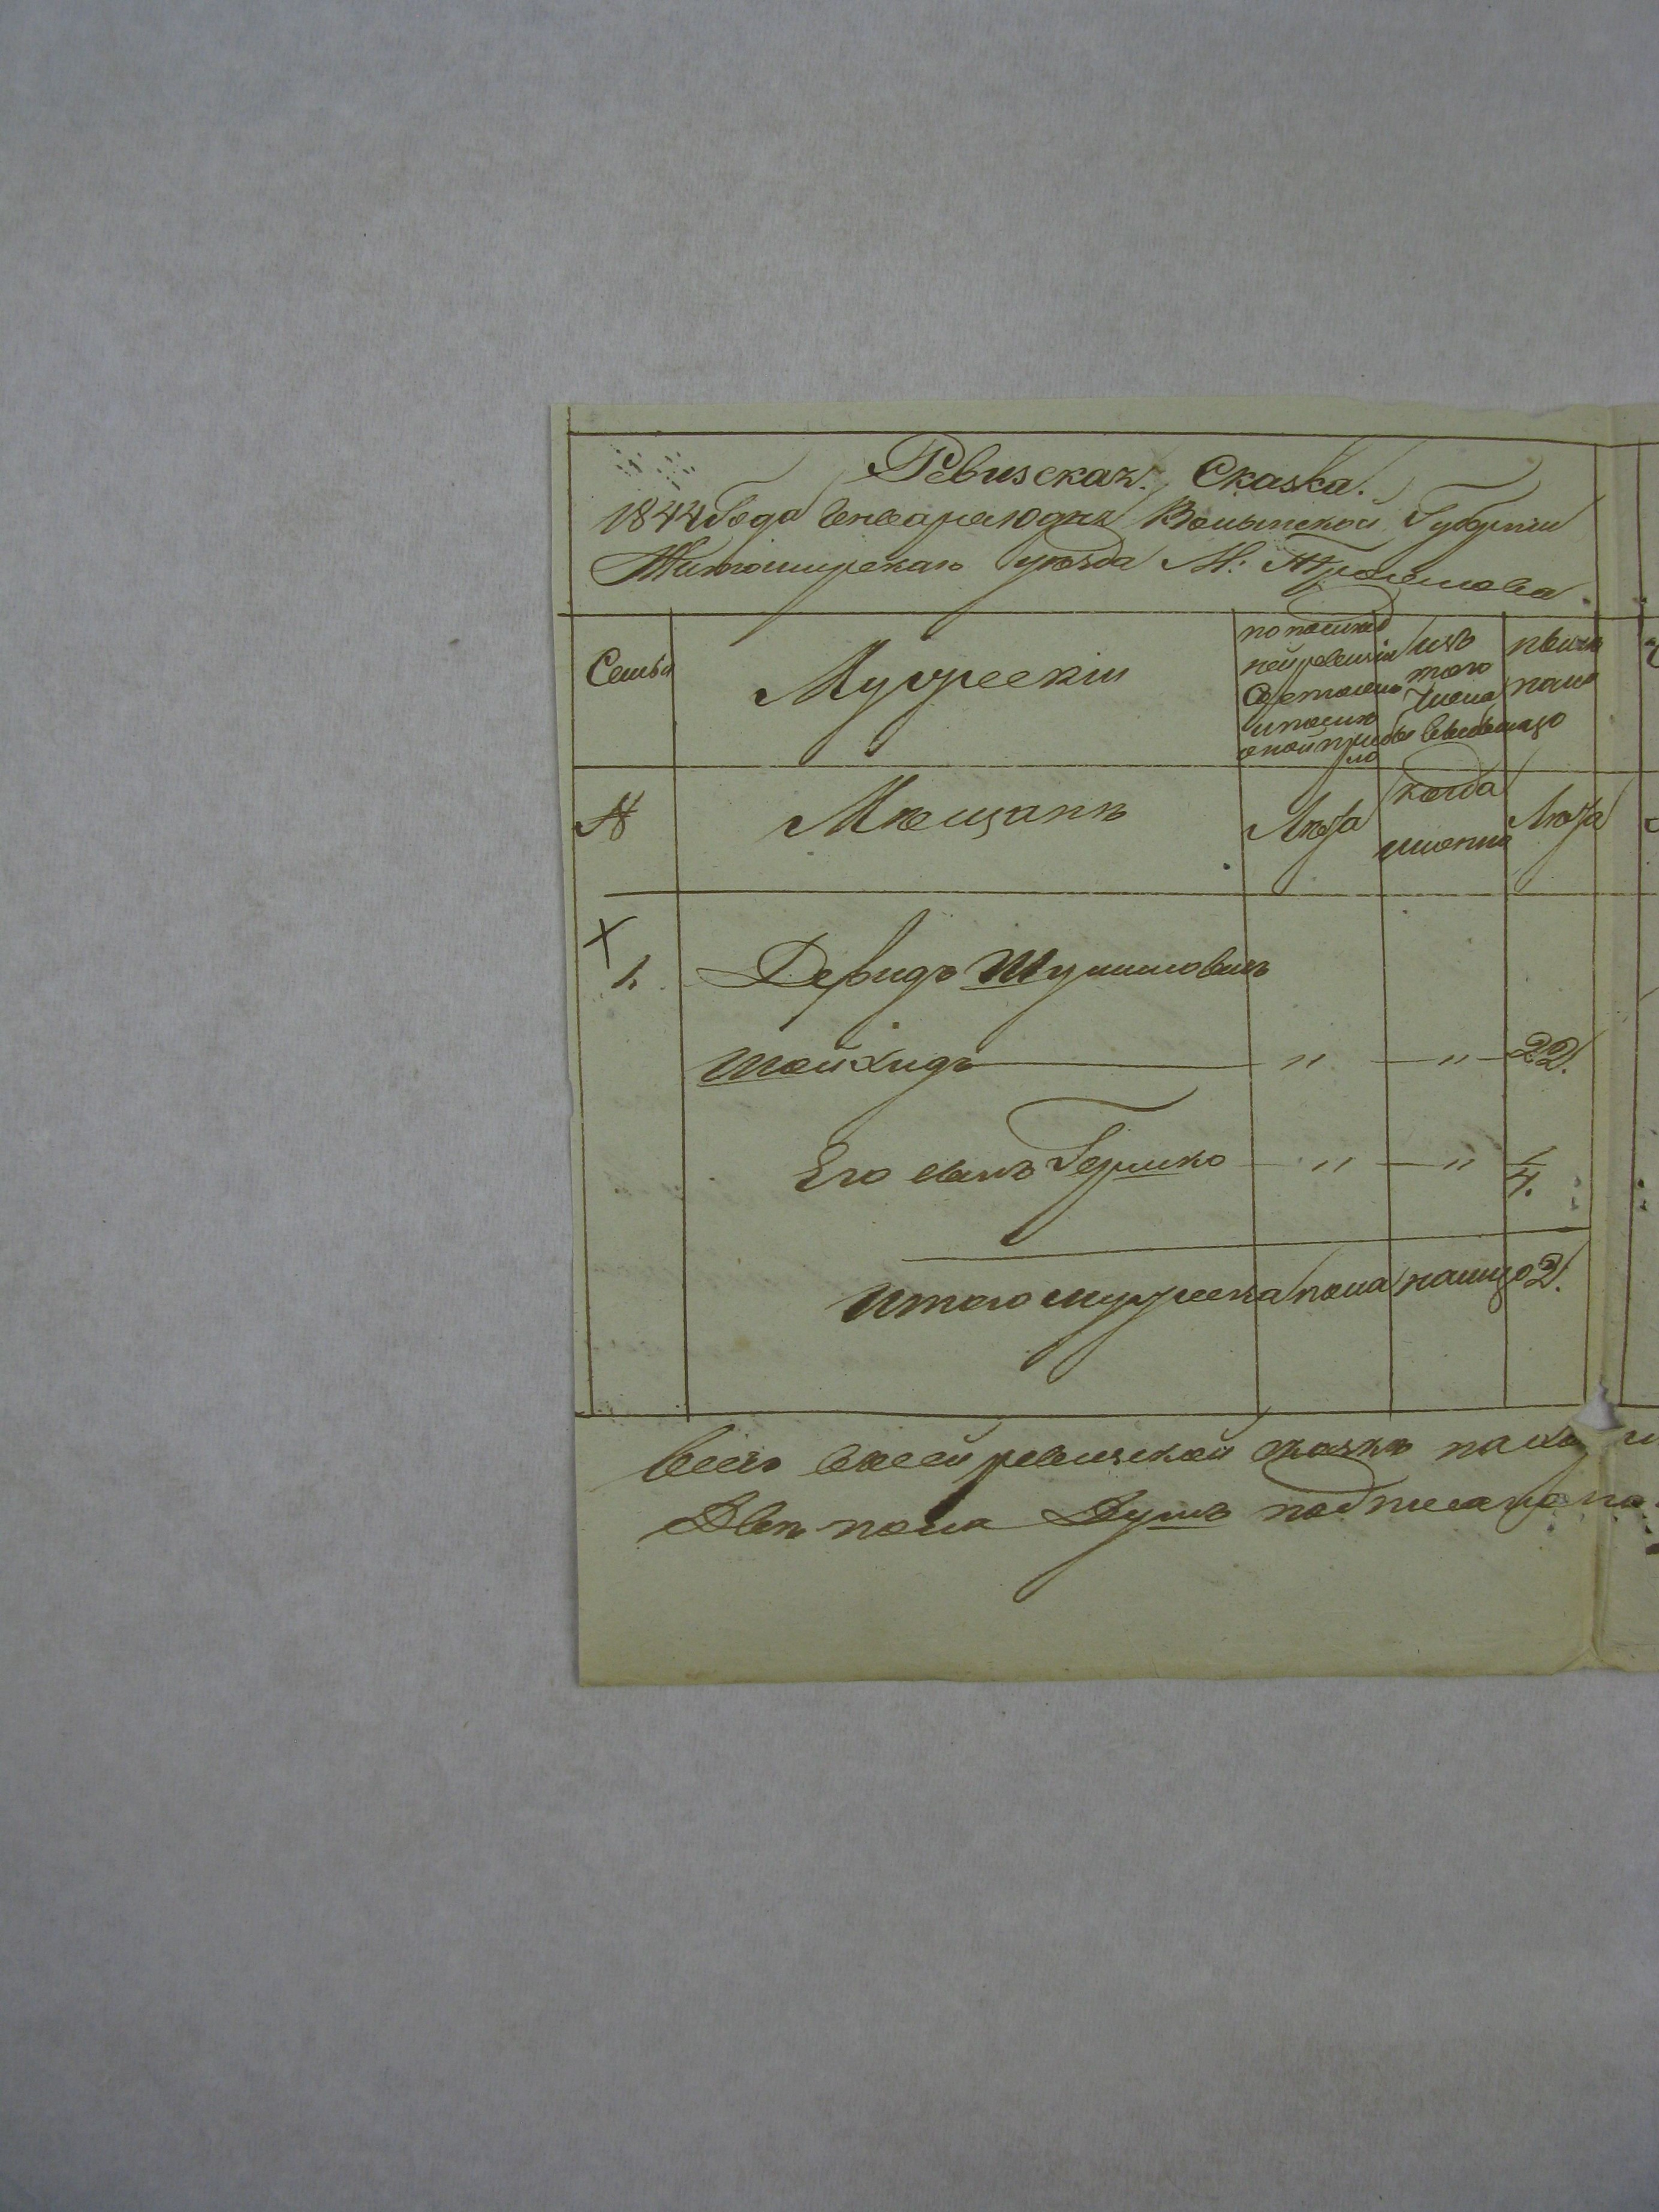 Ревизская. Сказка.
1844 Года Генваря 10 дня Волынской Губернии
Житомирскаго уезда М: Троянова
Семьи
Мужескiй
по послед
ней ревизiи
Состояло
и после
оной прибы
ло
изъ
того
Числа
выбыло
ныне
на лицо
№
Мещанъ
Лета
когда
имянно
Лета
1.
Дефидъ Шулимовичъ
Шойхидъ — " — " — 22.
Его сынъ Гершко — " — " 1/4.
Итого мужеска пола на лицо 2.
Всего в сей ревизской сказке на
Две пола Душъ